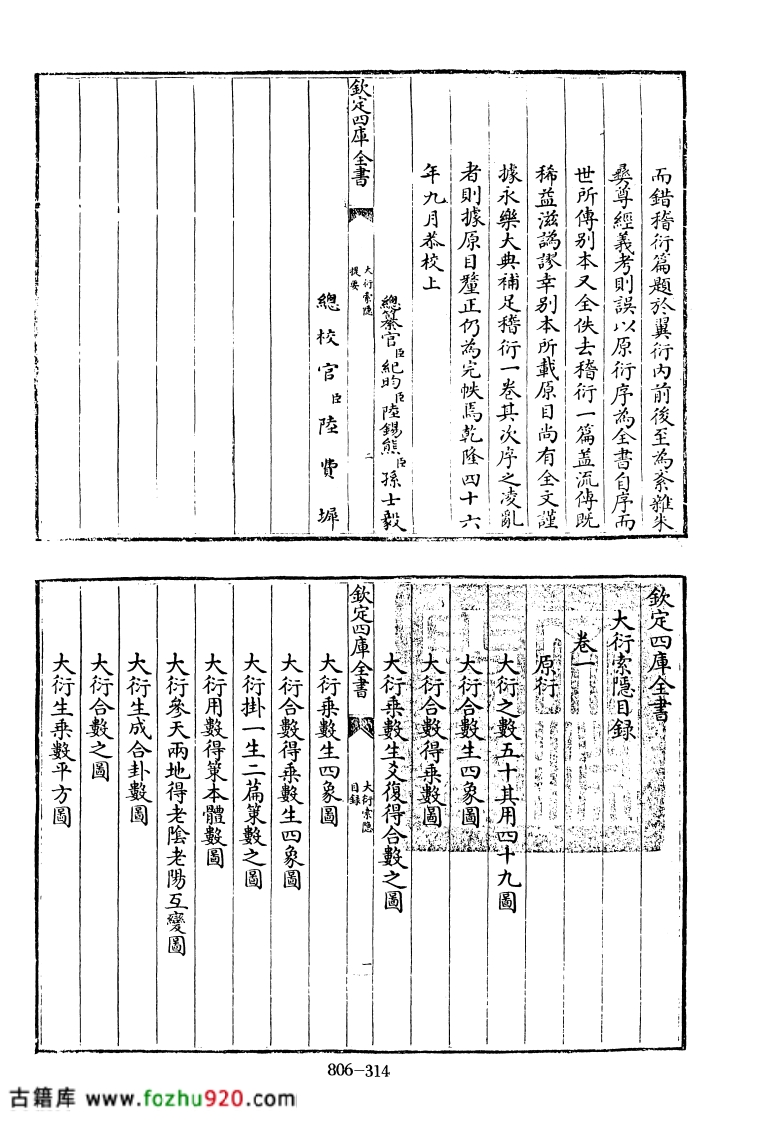 而錯稽衍篇題於翼衍內前後至為紊雜朱
彝尊經義考則誤以原衍序為全書自序而
世所傳別本又全佚去稽衍一篇蓋流傳既
稀益滋譌謬幸別本所載原目尚有全文謹
據永樂大典補足稽衍一卷其次序之淩亂
者則據原目釐正仍為完帙焉乾隆四十六
年九月恭校上
總纂官臣紀昀臣陸錫熊臣孫士毅
欽定四庫全書
大衍索隱
提要
二
總校官臣陸費墀
欽定四庫全書
大衍索隱目録
卷一
原衍
大衍之數五十其用四十九圖
大衍合數生四象圖
大衍合數得乘數圖
大衍乘數生爻復得合數之圖
欽定四庫全書
大衍索隱
目録
一
大衍乘數生四象圖
大衍合數得乘數生四象圖
大衍掛一生二篇策數之圖
大衍用數得策本體數圖
大衍參天兩地得老陰老陽互變圖
大衍生成合卦數圖
大衍合數之圖
大衍生乘數平方圖
806-314
古籍库 www.fozhu920.com